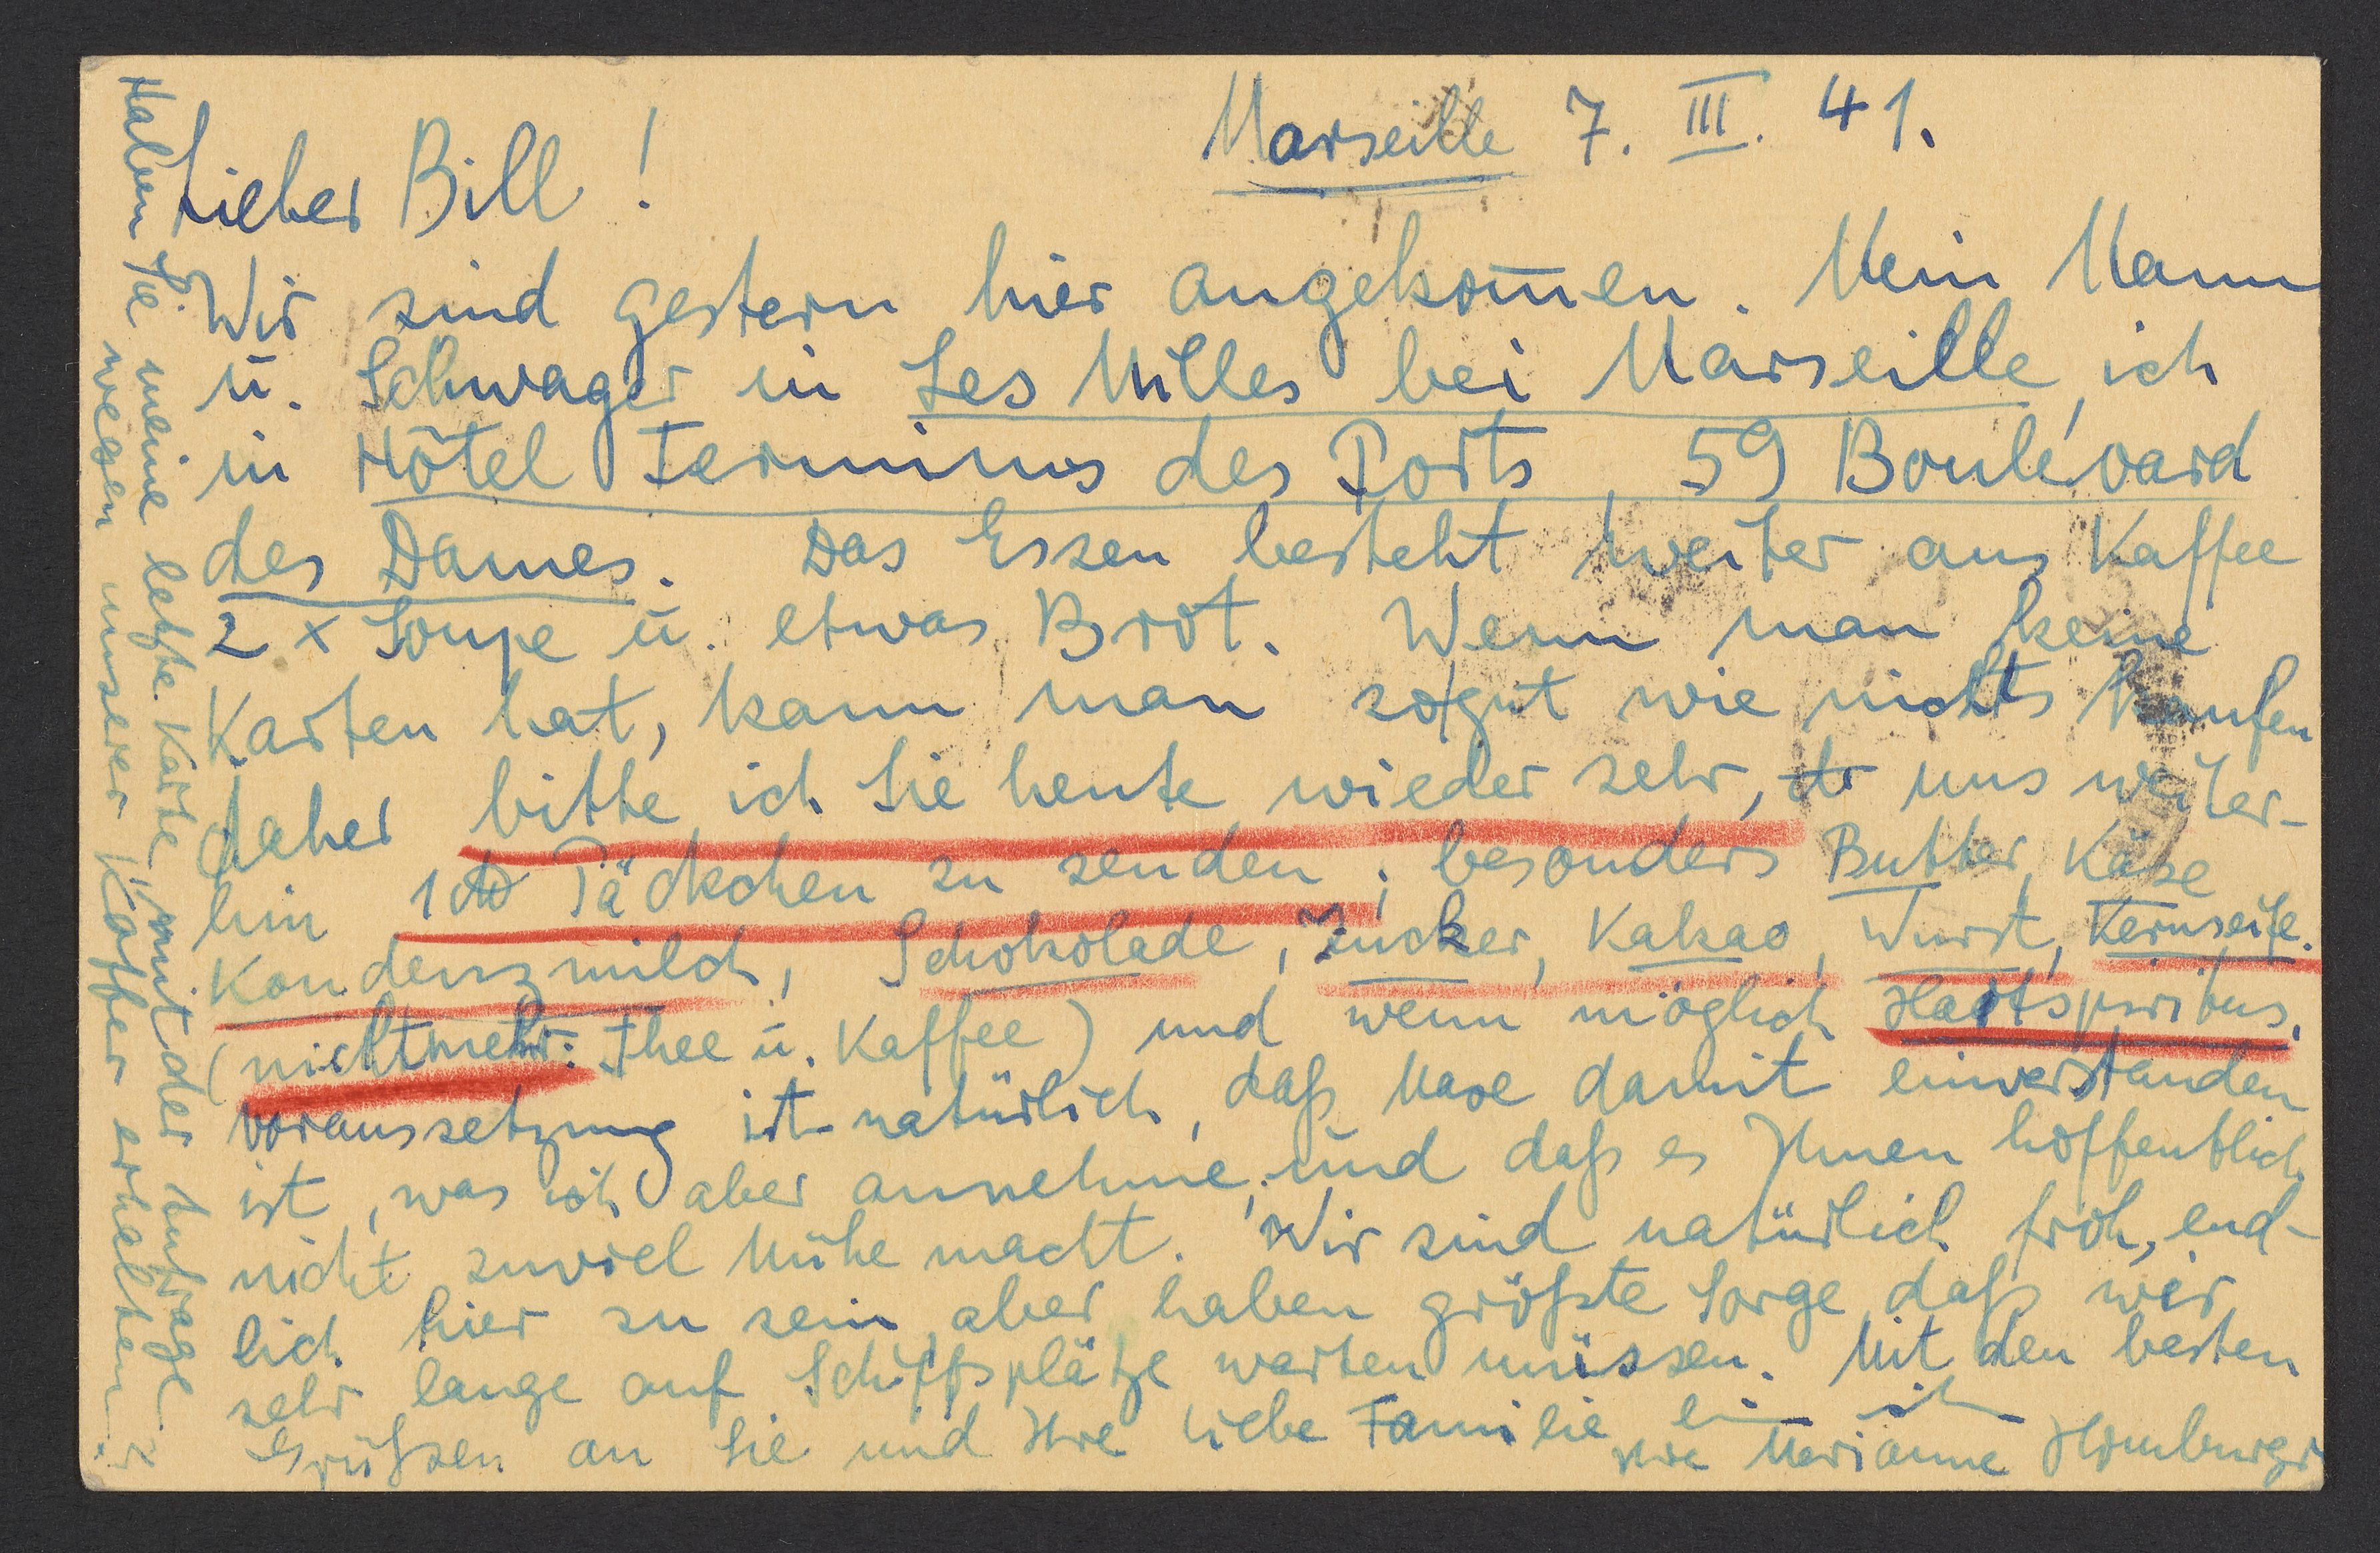 Marseille 7. III. 41.
Lieber Bill!
Wir sind gestern hier angekom̅en. Mein Mann
u. Schwager in Les Milles bei Marseille, ich
in Hôtel Terminus des Ports, 59 Boulevard
des Dames. Das Essen besteht weiter aus Kaffee
2 x Soupe u. etwas Brot. Wenn man keine
Karten hat, kann man so gut wie nichts kaufen
daher bitte ich Sie heute wieder sehr, uns weiter-
hin 1 Päckchen zu senden; besonders Butter, Käse
Kondenzmilch, Schokolade, Zucker, Kakao, Wurst, Kernseife.
(nichtmehr: Thee u. Kaffee) und wenn möglich Hartspiritus.
Voraussetzung ist natürlich, daß Maxe damit einverstanden
ist, was ich aber annehme, und daß es Ihnen hoffentlich
nicht zuviel Mühe macht. Wir sind natürlich froh, end-
lich hier zu sein, aber haben größte Sorge, daß wir
sehr lange auf Schiffsplätze warten müssen. Mit den besten
Grüßen an Sie und Ihre liebe Familie bin ich
Ihre Marianne Homburger
Haben Sie meine letzte Karte mit der Anfrage
wegen unserer Koffer erhalten?